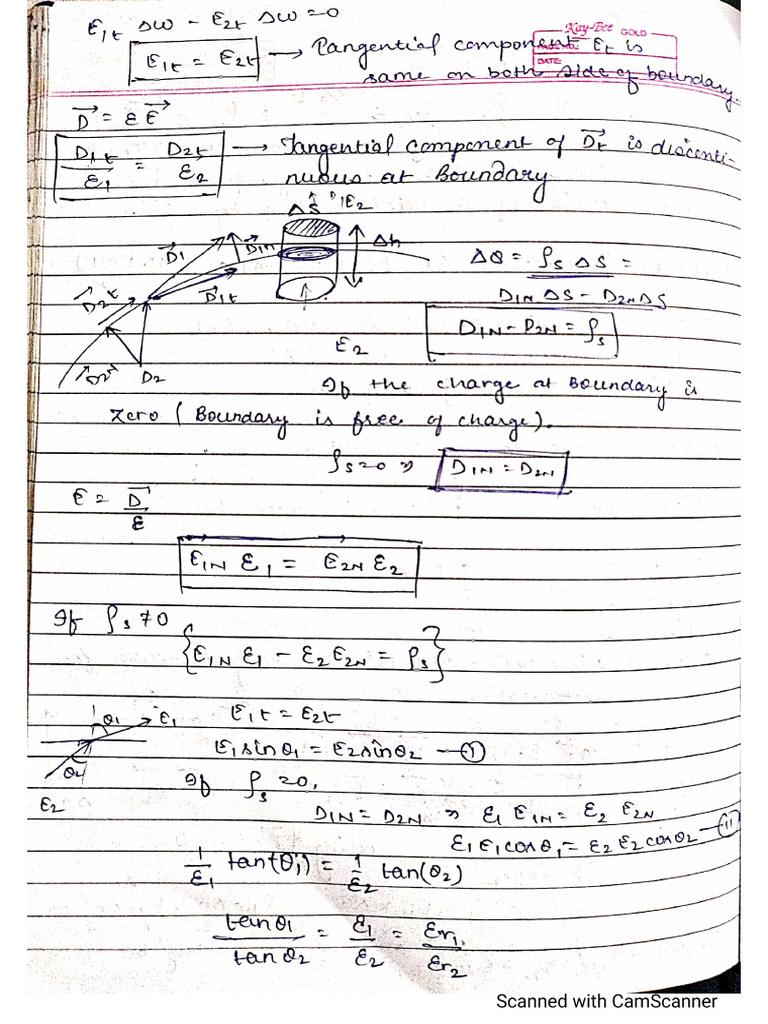 E₁t Δω - E₂t Δω = 0
Kay-Bee GOLD
E₁t = E₂t → Tangential component Et is
DATE:
same on both side of boundary.
D⃗ = εE⃗
D₁t/ε₁ = D₂t/ε₂ → Tangential component of D⃗t is disconti-
nuous at Boundary
ΔS
D⃗₁ D⃗₁n Δh
ΔQ = ρs ΔS =
D⃗₂t D⃗₁t
D₁N ΔS - D₂N ΔS
D₁N - D₂N = ρs
ε₂
D₂
If the charge at Boundary is
zero (Boundary is free of charge).
ρs=0 ⇒ D₁N = D₂N
E = D⃗/ε
E₁N ε₁ = E₂N ε₂
If ρs ≠ 0
{E₁N ε₁ - ε₂ E₂N = ρs}
θ₁ E₁ E₁t = E₂t
E₁ sinθ₁ = E₂ sinθ₂ — (I)
θ₂ If ρs = 0,
E₂
D₁N = D₂N ⇒ ε₁ E₁N = ε₂ E₂N
ε₁ E₁ cosθ₁ = ε₂ E₂ cosθ₂ — (II)
1/ε₁ tan(θ₁) = 1/ε₂ tan(θ₂)
tanθ₁/tanθ₂ = ε₁/ε₂ = εr₁/εr₂
Scanned with CamScanner